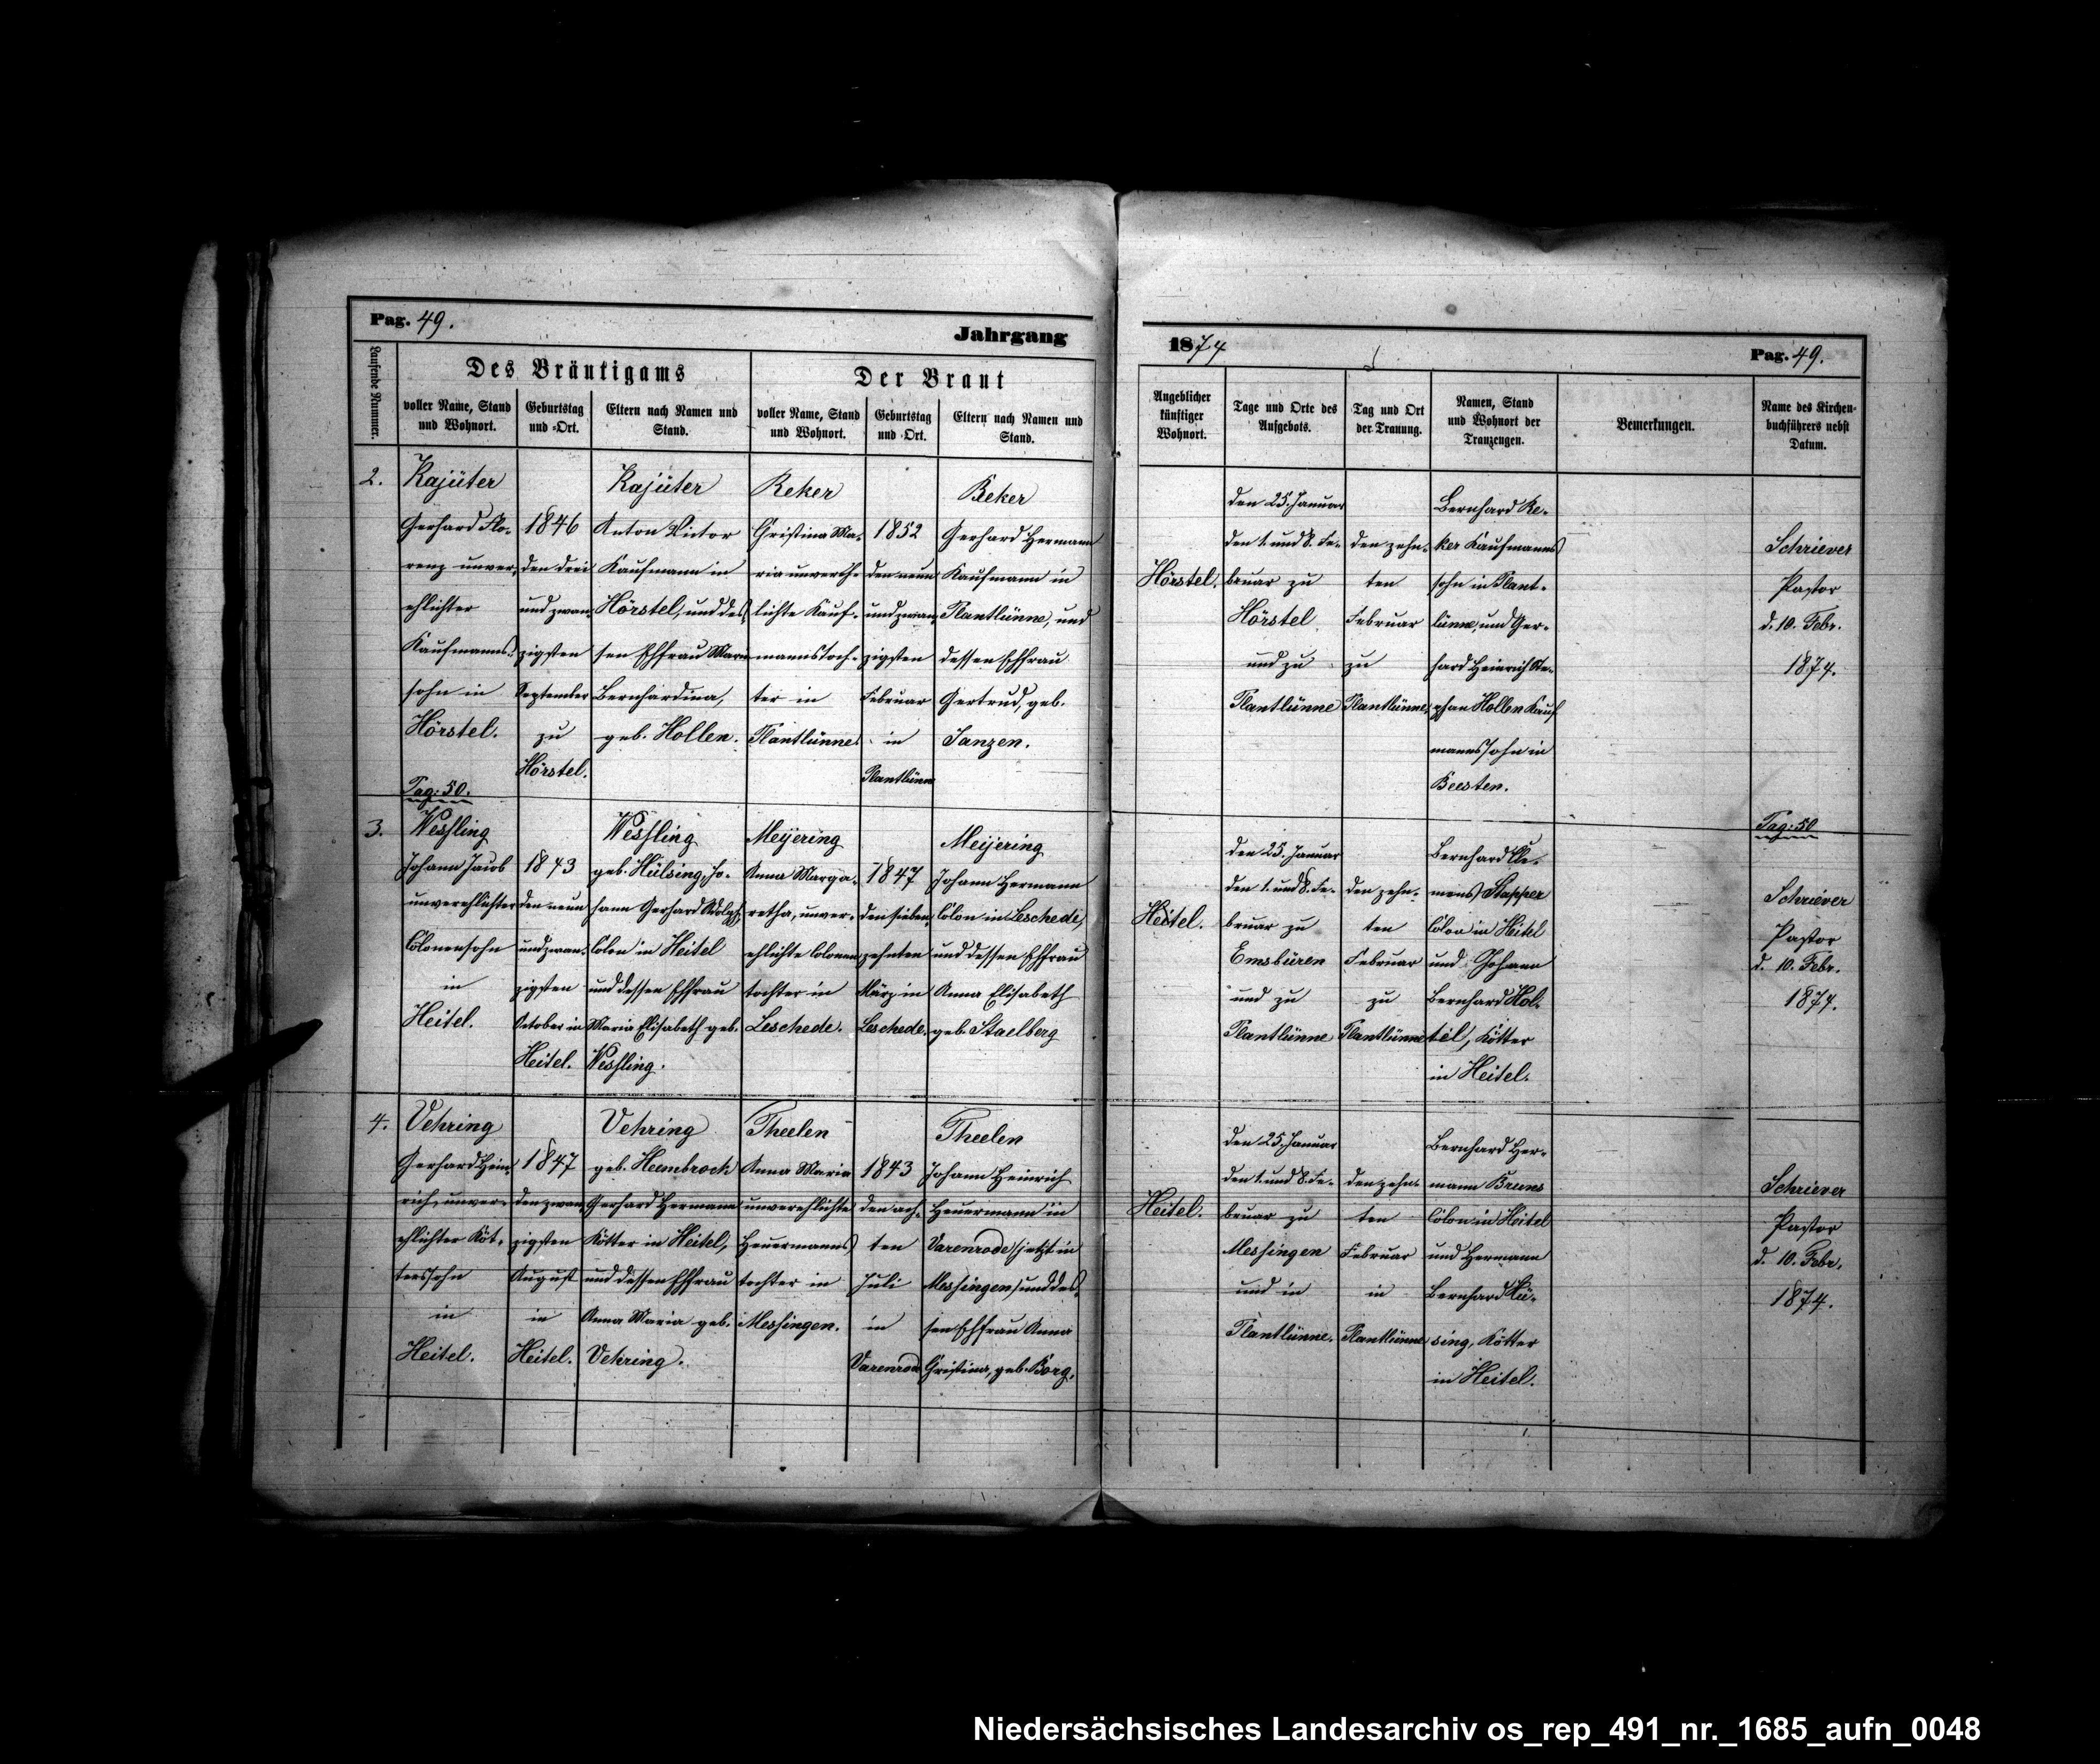 Pag. 49.
Jahrgang
1874
Pag. 49.
Laufende Nummer.
Des Bräutigams
Der Braut
voller Name, Stand
und Wohnort.
Geburtstag
und =Ort.
Eltern nach Namen und
Stand.
voller Name, Stand
und Wohnort.
Geburtstag
und Ort.
Eltern nach Namen und
Stand.
Angeblicher
künftiger
Wohnort.
Tage und Orte des
Aufgebots.
Tag und Ort
der Trauung.
Namen, Stand
und Wohnort der
Trauzeugen.
Bemerkungen.
Name des Kirchen-
buchführers nebst
Datum.
2.
Kajüter
Gerhard Flo-
renz unver-
ehlichter
Kaufmanns-
sohn in
Hörstel.
1846
den drei
und zwan-
zigsten
September
zu
Hörstel.
Kajüter
Anton Victor
Kaufmann in
Hörstel, und des-
sen Ehefrau Maria
Bernhardina,
geb. Hollen.
Reker
Christina Ma-
ria unvereh-
lichte Kauf-
mannstoch-
ter in
Plantlünne.
1852
den neun
und zwan-
zigsten
Februar
in
Plantlünne
Reker
Gerhard Hermann
Kaufmann in
Plantlünne, und
dessen Ehefrau
Gertrud, geb.
Sanzen.
Hörstel.
den 25. Januar
den 1. und 8. Fe-
bruar zu
Hörstel
und zu
Plantlünne
den zehn-
ten
Februar
zu
Plantlünne.
Bernhard Re-
ker Kaufmanns
sohn in Plant-
lünne, und Ger-
hard Heinrich Ste-
phan Hollen Kauf
manns sohn in
Beesten.
Schriever
Pastor
d. 10. Febr.
1874.
Pag: 50.
Pag: 50
3.
Wessling
Johann Jacob
unverehlichter
Colonensohn
in
Heitel.
1843
den neun
und zwan-
zigsten
October in
Heitel.
Wessling
geb. Hülsing, Jo-
hann Gerhard Adolph,
Colon in Heitel
und dessen Ehefrau
Maria Elisabeth geb.
Wessling.
Meijering
Anna Marga-
retha, unver-
ehlichte Colonen
tochter in
Leschede.
1847
den sieben-
zehnten
März in
Leschede.
Meijering
Johann Hermann
Colon in Leschede,
und dessen Ehefrau
Anna Elisabeth
geb. Staelberg
Heitel.
den 25. Januar
den 1. und 8. Fe-
bruar zu
Emsbüren
und zu
Plantlünne
den zehn-
ten
Februar
zu
Plantlünne
Bernhard Cle-
mens Stapper
Colon in Heitel
und Johann
Bernhard Hol-
tel, Kötter
in Heitel.
Schriever
Pastor
d. 10. Febr.
1874.
4.
Vehring
Gerhard Hein-
rich, unver-
ehlichter Köt-
terssohn
in
Heitel.
1847
den zwan-
zigsten
August
in
Heitel.
Vehring
geb. Heembrock
Gerhard Hermann
Kötter in Heitel,
und dessen Ehefrau
Anna Maria geb.
Vehring.
Theelen
Anna Maria
unverehlichte
Heuermanns
tochter in
Messingen.
1843
den ach-
ten
Juli
in
Varenrode
Theelen
Johann Heinrich
Heuermann in
Varenrode /jetzt in
Messingen/ und des-
sen Ehefrau Anna
Christina, geb. Borg.
Heitel.
den 25. Januar
den 1. und 8. Fe-
bruar zu
Messingen
und in
Plantlünne.
den zehn-
ten
Februar
in
Plantlünne
Bernhard Her-
mann Bruns
Colon in Heitel
und Hermann
Bernhard Lü-
sing, Kötter
in Heitel.
Schriever
Pastor
d. 10. Febr.
1874.
Niedersächsisches Landesarchiv os_rep_491_nr._1685_aufn_0048